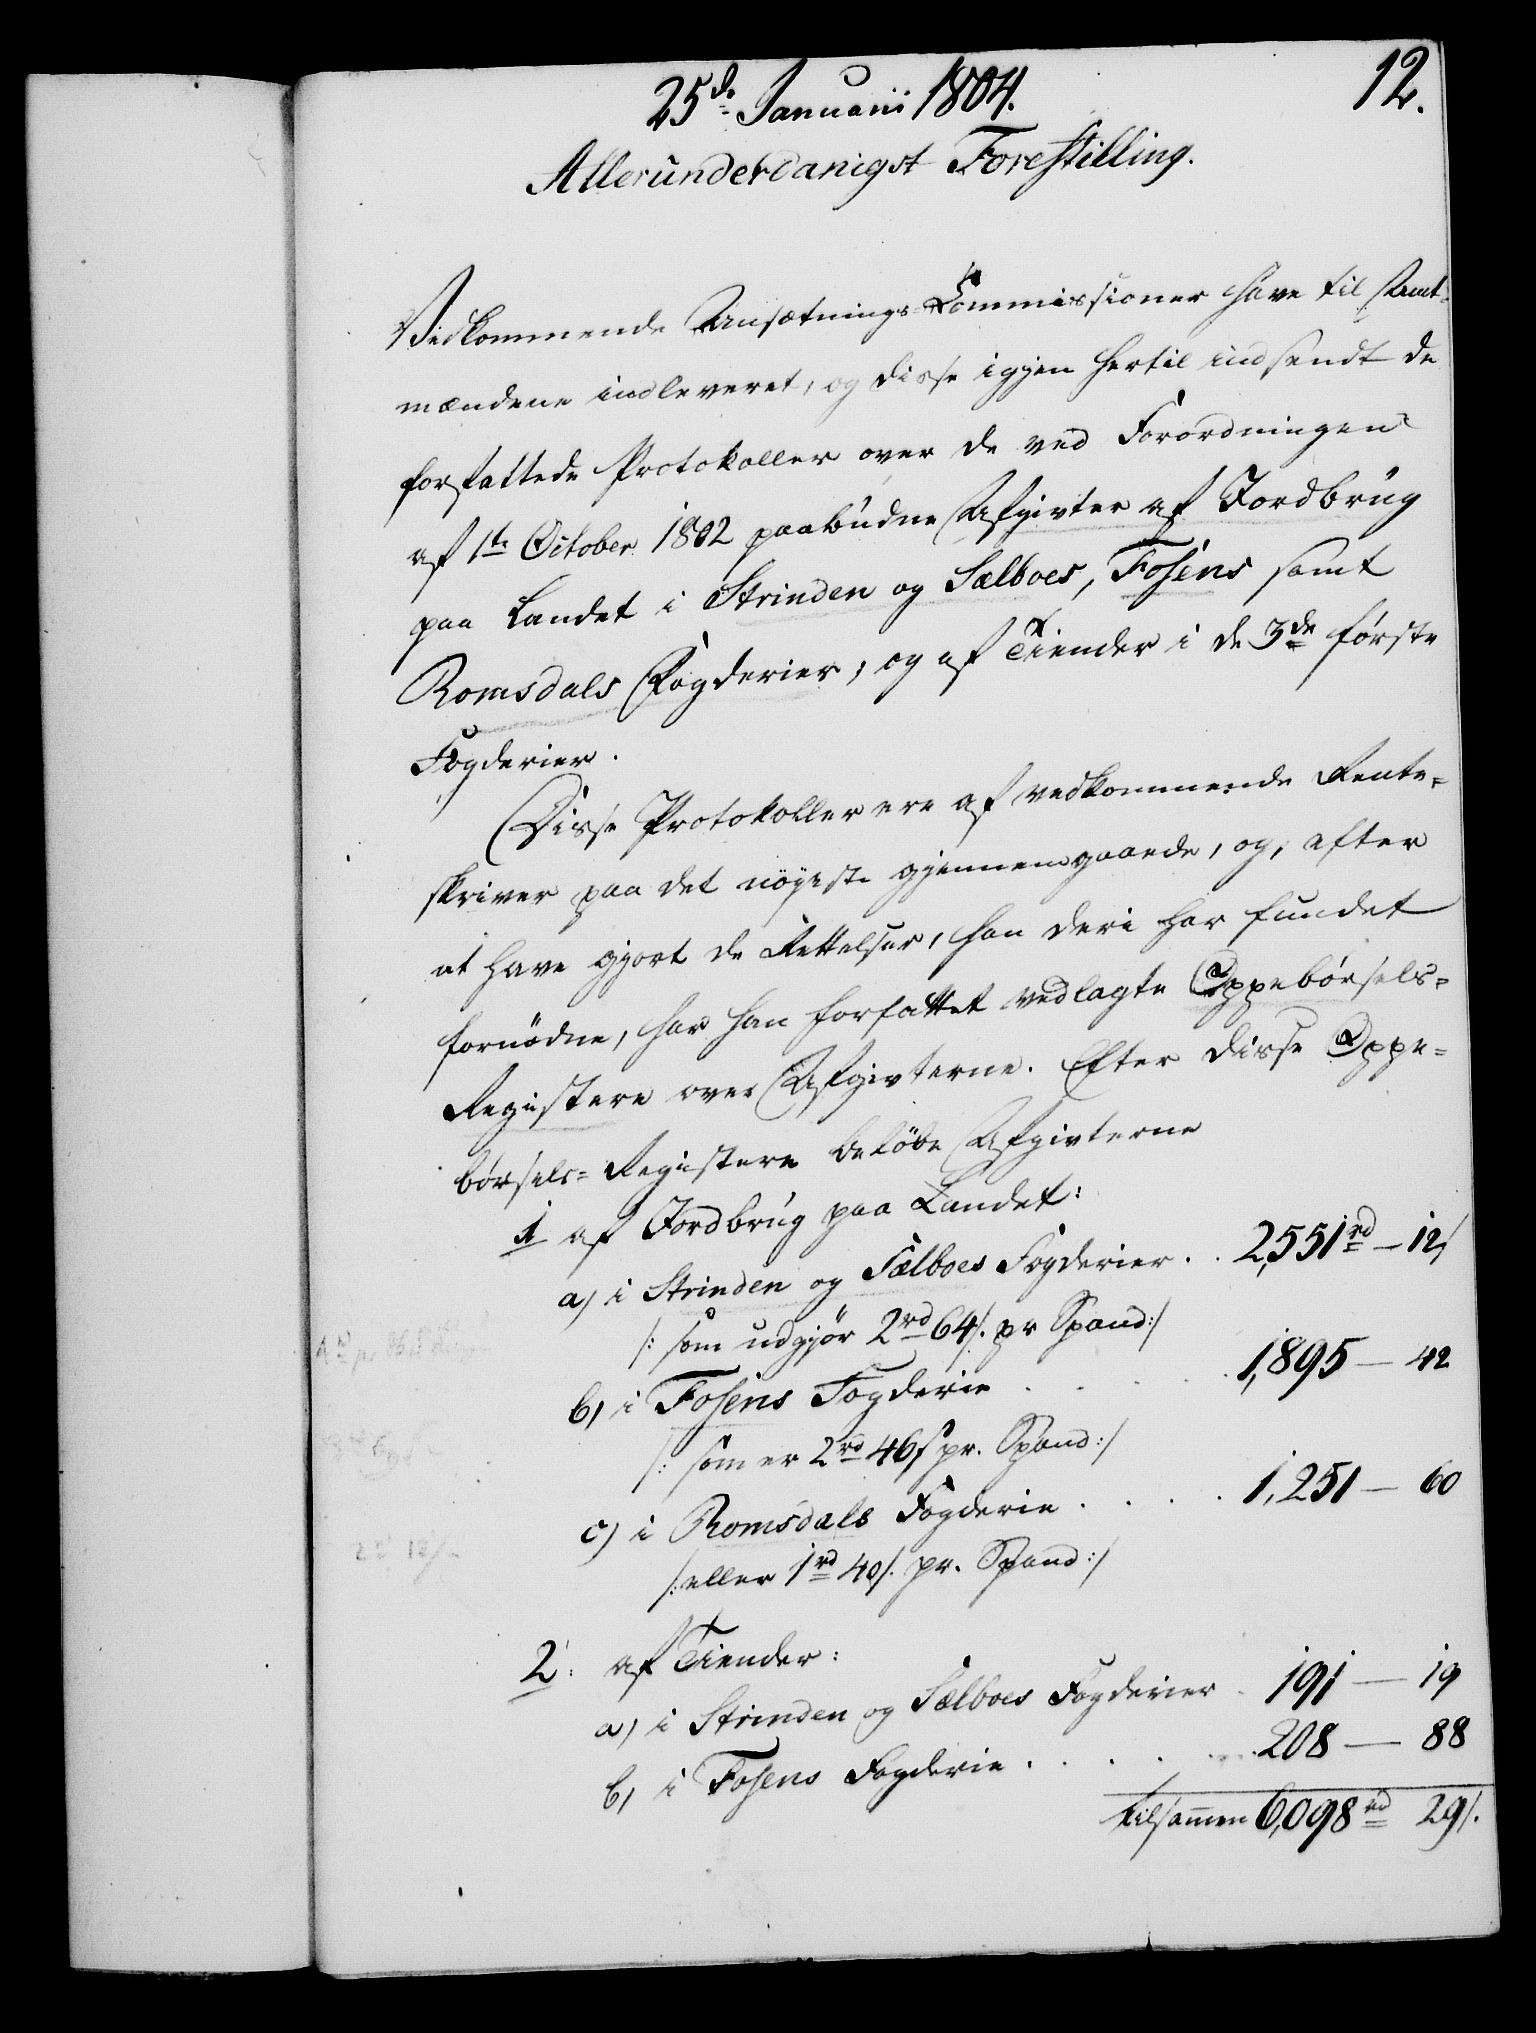 12.
25de Januarii 1804.
Allerunderdanigst Forestilling.
Vedkommende Ansætnings-Commissioner have til Amt-
mændene indleveret, og disse igjen hertil indsendt de
forfattede Protokoller over de ved Forordningen
af 1te October 1802 paabudne Afgivter af Jordbrug
paa Landet i Strinden og Sælboes, Fosens samt
Romsdals Fogderier, og af Tiender i de 3de første
Fogderier.
Disse Protokoller ere af vedkommende Rente-
skriver paa det nöyeste gjennemgaaede, og, efter
at have gjort de Rettelser, han deri har fundet
fornödne, har han forfattet vedlagte Oppebörsels-
Registere over Afgivterne. Efter disse Oppe-
börsels-Registere beløbe Afgivterne
1 af Jordbrug paa Landet:
a) i Strinden og Sælboes Fogderier . . 2,551rd – 12 s
/: som udgjör 2rd 64 s. pr Spand :/
b) i Fosens Fogderie . . . . . 1,895 – 42
/: som er 2rd 46 s pr. Spand :/
c) i Romsdals Fogderie . . . . 1,251 – 60
/: eller 1rd 40 s. pr. Spand :/
2: af Tiender:
a) i Strinden og Sælboes Fogderier . 191 – 19
b) i Fosens Fogderie . . . . . 208 – 88
tilsam̄en 6,098rd 29 s.